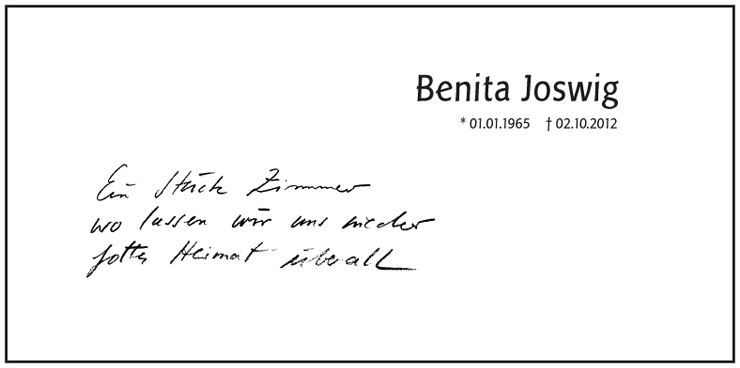 Benita Joswig
* 01.01.1965 † 02.10.2012
Ein Stück Zimmer
wo lassen wir uns nieder
Gottes Heimat überall